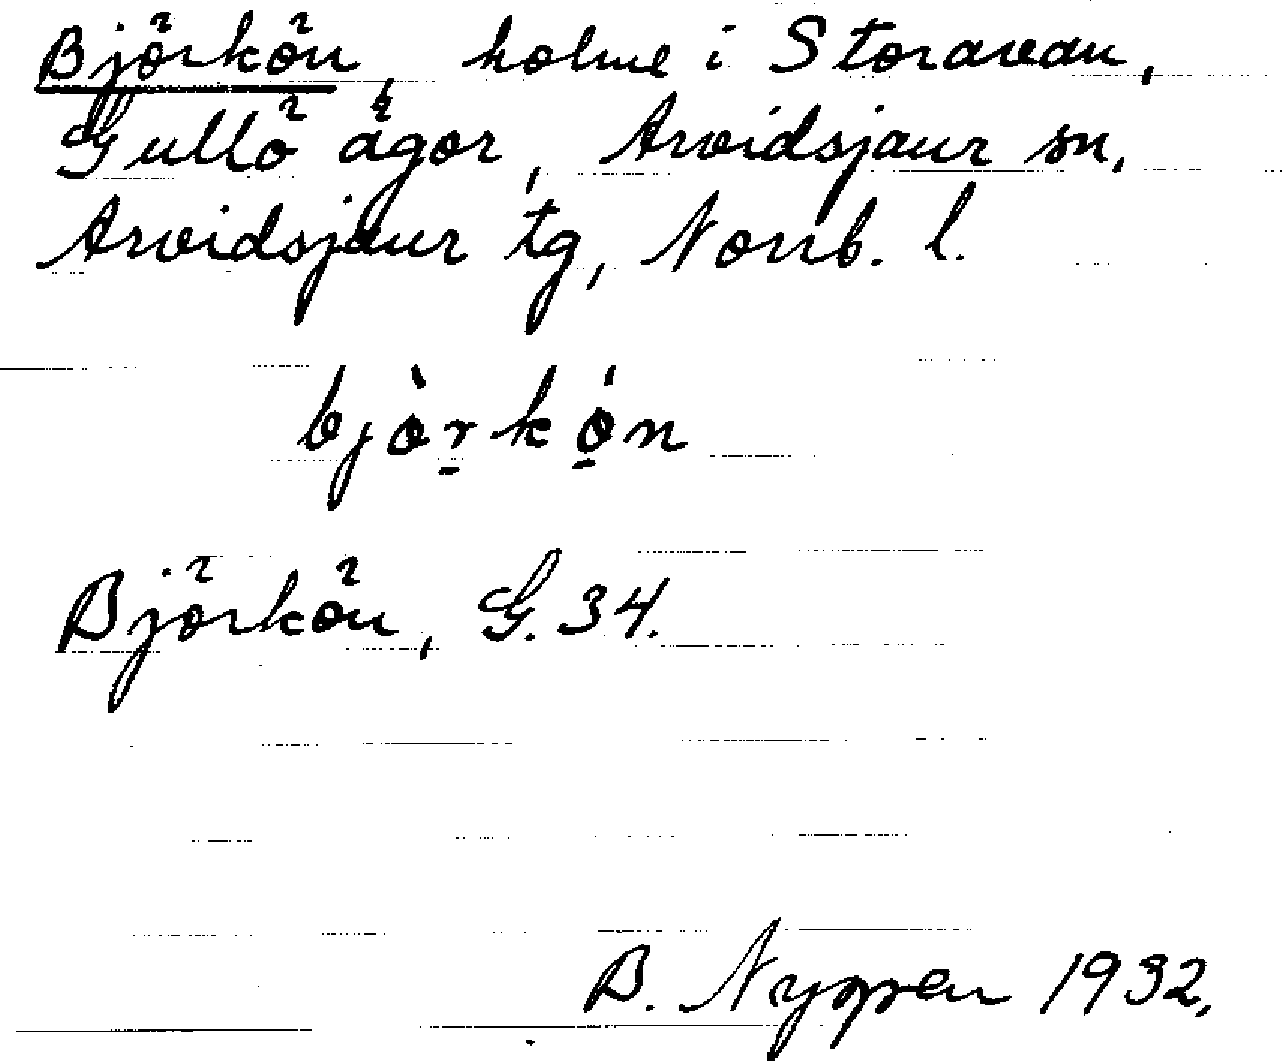 Björkön, holme i Storavan,
Gullö ägor, Arvidsjaur sn,
Arvidsjaur tg, Norrb. l.
bjòr̲kó̲n
Björkön, G. 34.
B. Nygren 1932.